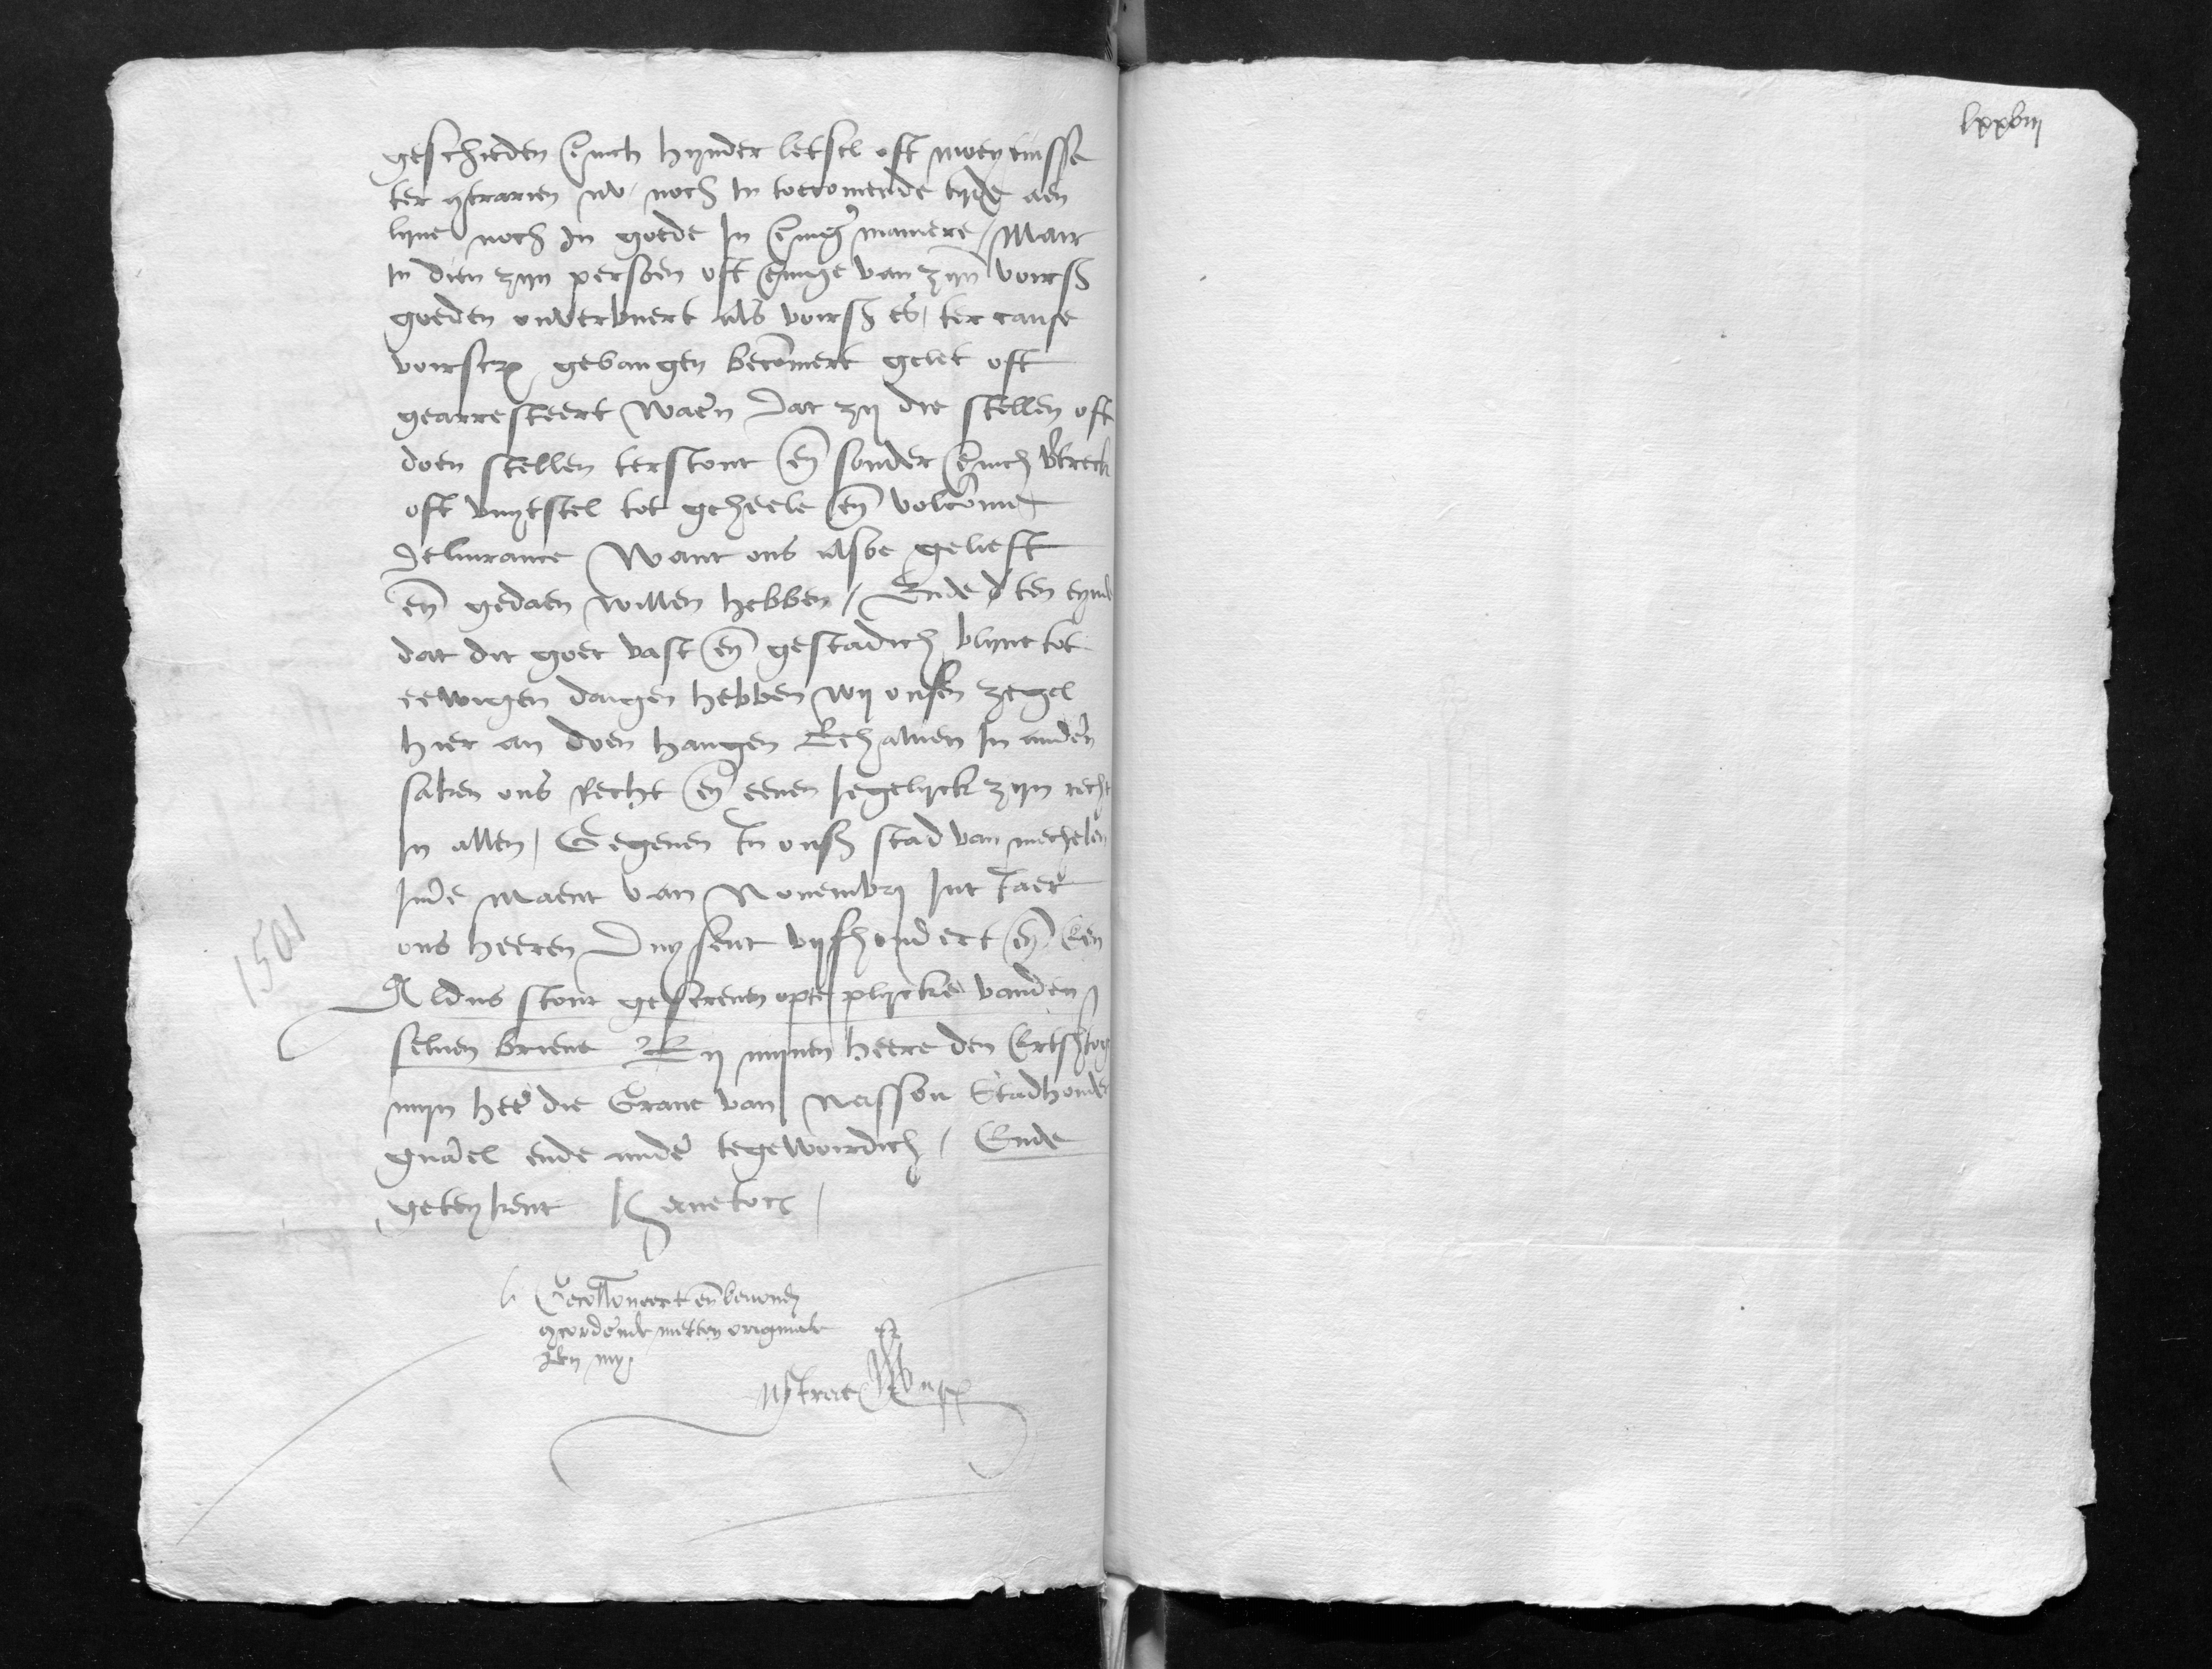 geschieden Enich hynder letsel oft moeyenisse
ter 9trarien nv noch In toecomende tyde aen
lyue noch In goede In Enig' maniere / Mair
In dien zyn persoen oft Enige van zyn voirs
goeden onverbuert als voirs es, ter cause
voirscr gevangen becomert gelet oft
gearresteert waen dat zy die stellen oft
doen stellen terstont en sonder Enich vtreck
oft vuytstel tot geheele en volcome
deliurance Want ons alsoe gelieft
en gedaen willen hebben / Ende ten eynde
dat dit goet vast en gestadich blyue tot
eewigen daigen hebben wy onsen zegel
hier an doen hangen Behaluen In anden
saken ons Recht en eenen Iegelyck zyn recht
In allen / Gegeuen In ons stad van mechelen
Inde maent van Nouembri Int Iaer
1501
ons heeren Duysent vyfhondert en Een
Aldus stont gescreuen opte plycke vanden
seluen brieue By mynen heere den Ertshog
myn hee die Graue van Nassou Stadhoude
gnael ende ande tegewoirdich / Ende
geteykent Haneton
Gecollacioneert en beuonden
9corderende metten originale
Bij my
lxxviij